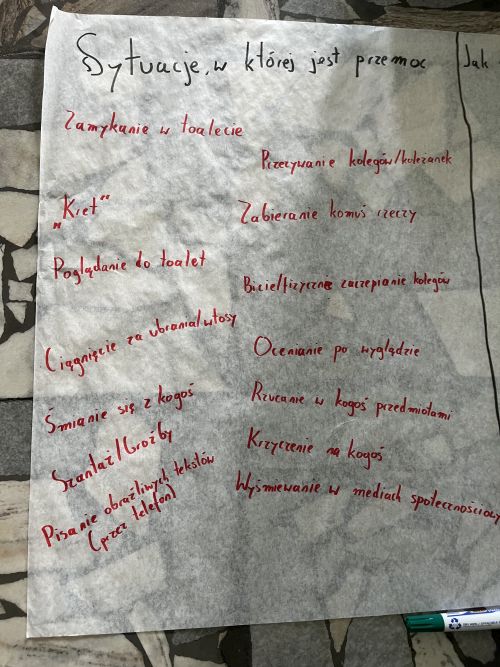 Sytuacje, w której jest przemoc
Jak
Zamykanie w toalecie
Przezywanie kolegów/koleżanek
„Kret”
Zabieranie komuś rzeczy
Poglądanie do toalet
Bicie/fizyczne zaczepianie kolegów
Ciągnięcie za ubrania/włosy
Ocenianie po wyglądzie
Śmianie się z kogoś
Rzucanie w kogoś przedmiotami
Szantaż/Groźby
Krzyczenie na kogoś
Pisanie obraźliwych tekstów
(przez telefon)
Wyśmiewanie w mediach społecznościowy